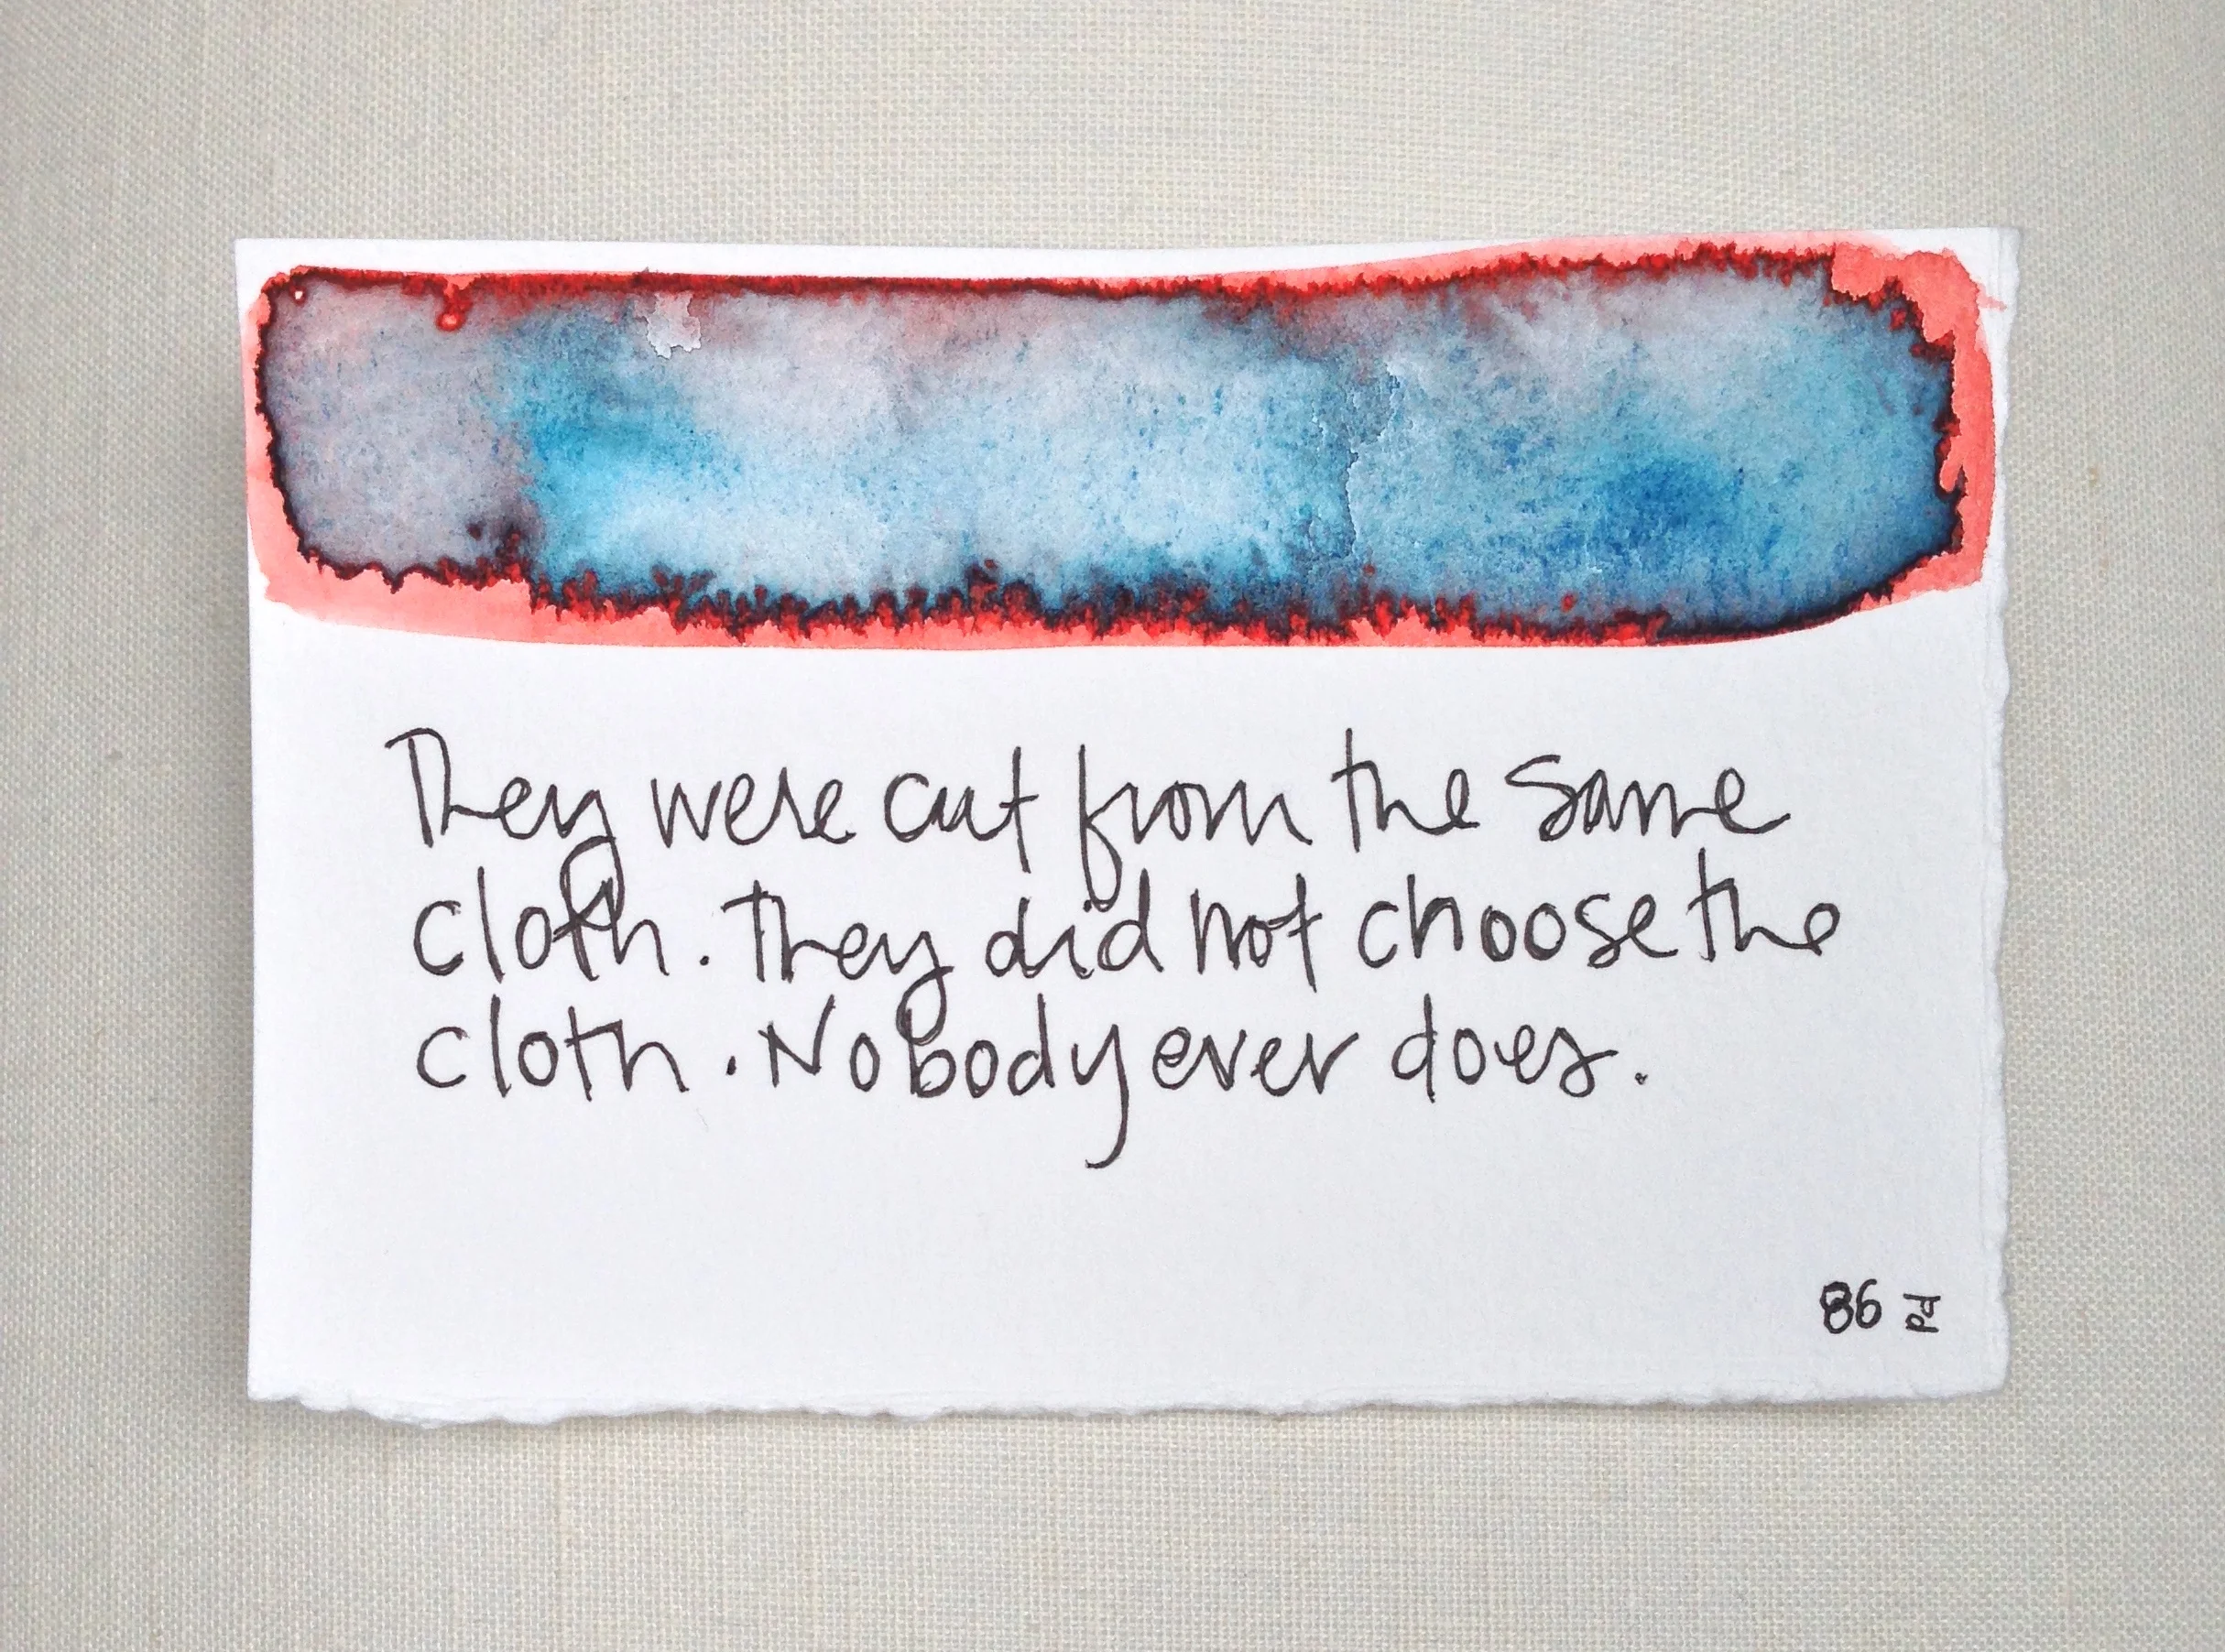 They were cut from the same
cloth. They did not choose the
cloth. Nobody ever does.
86 Pd